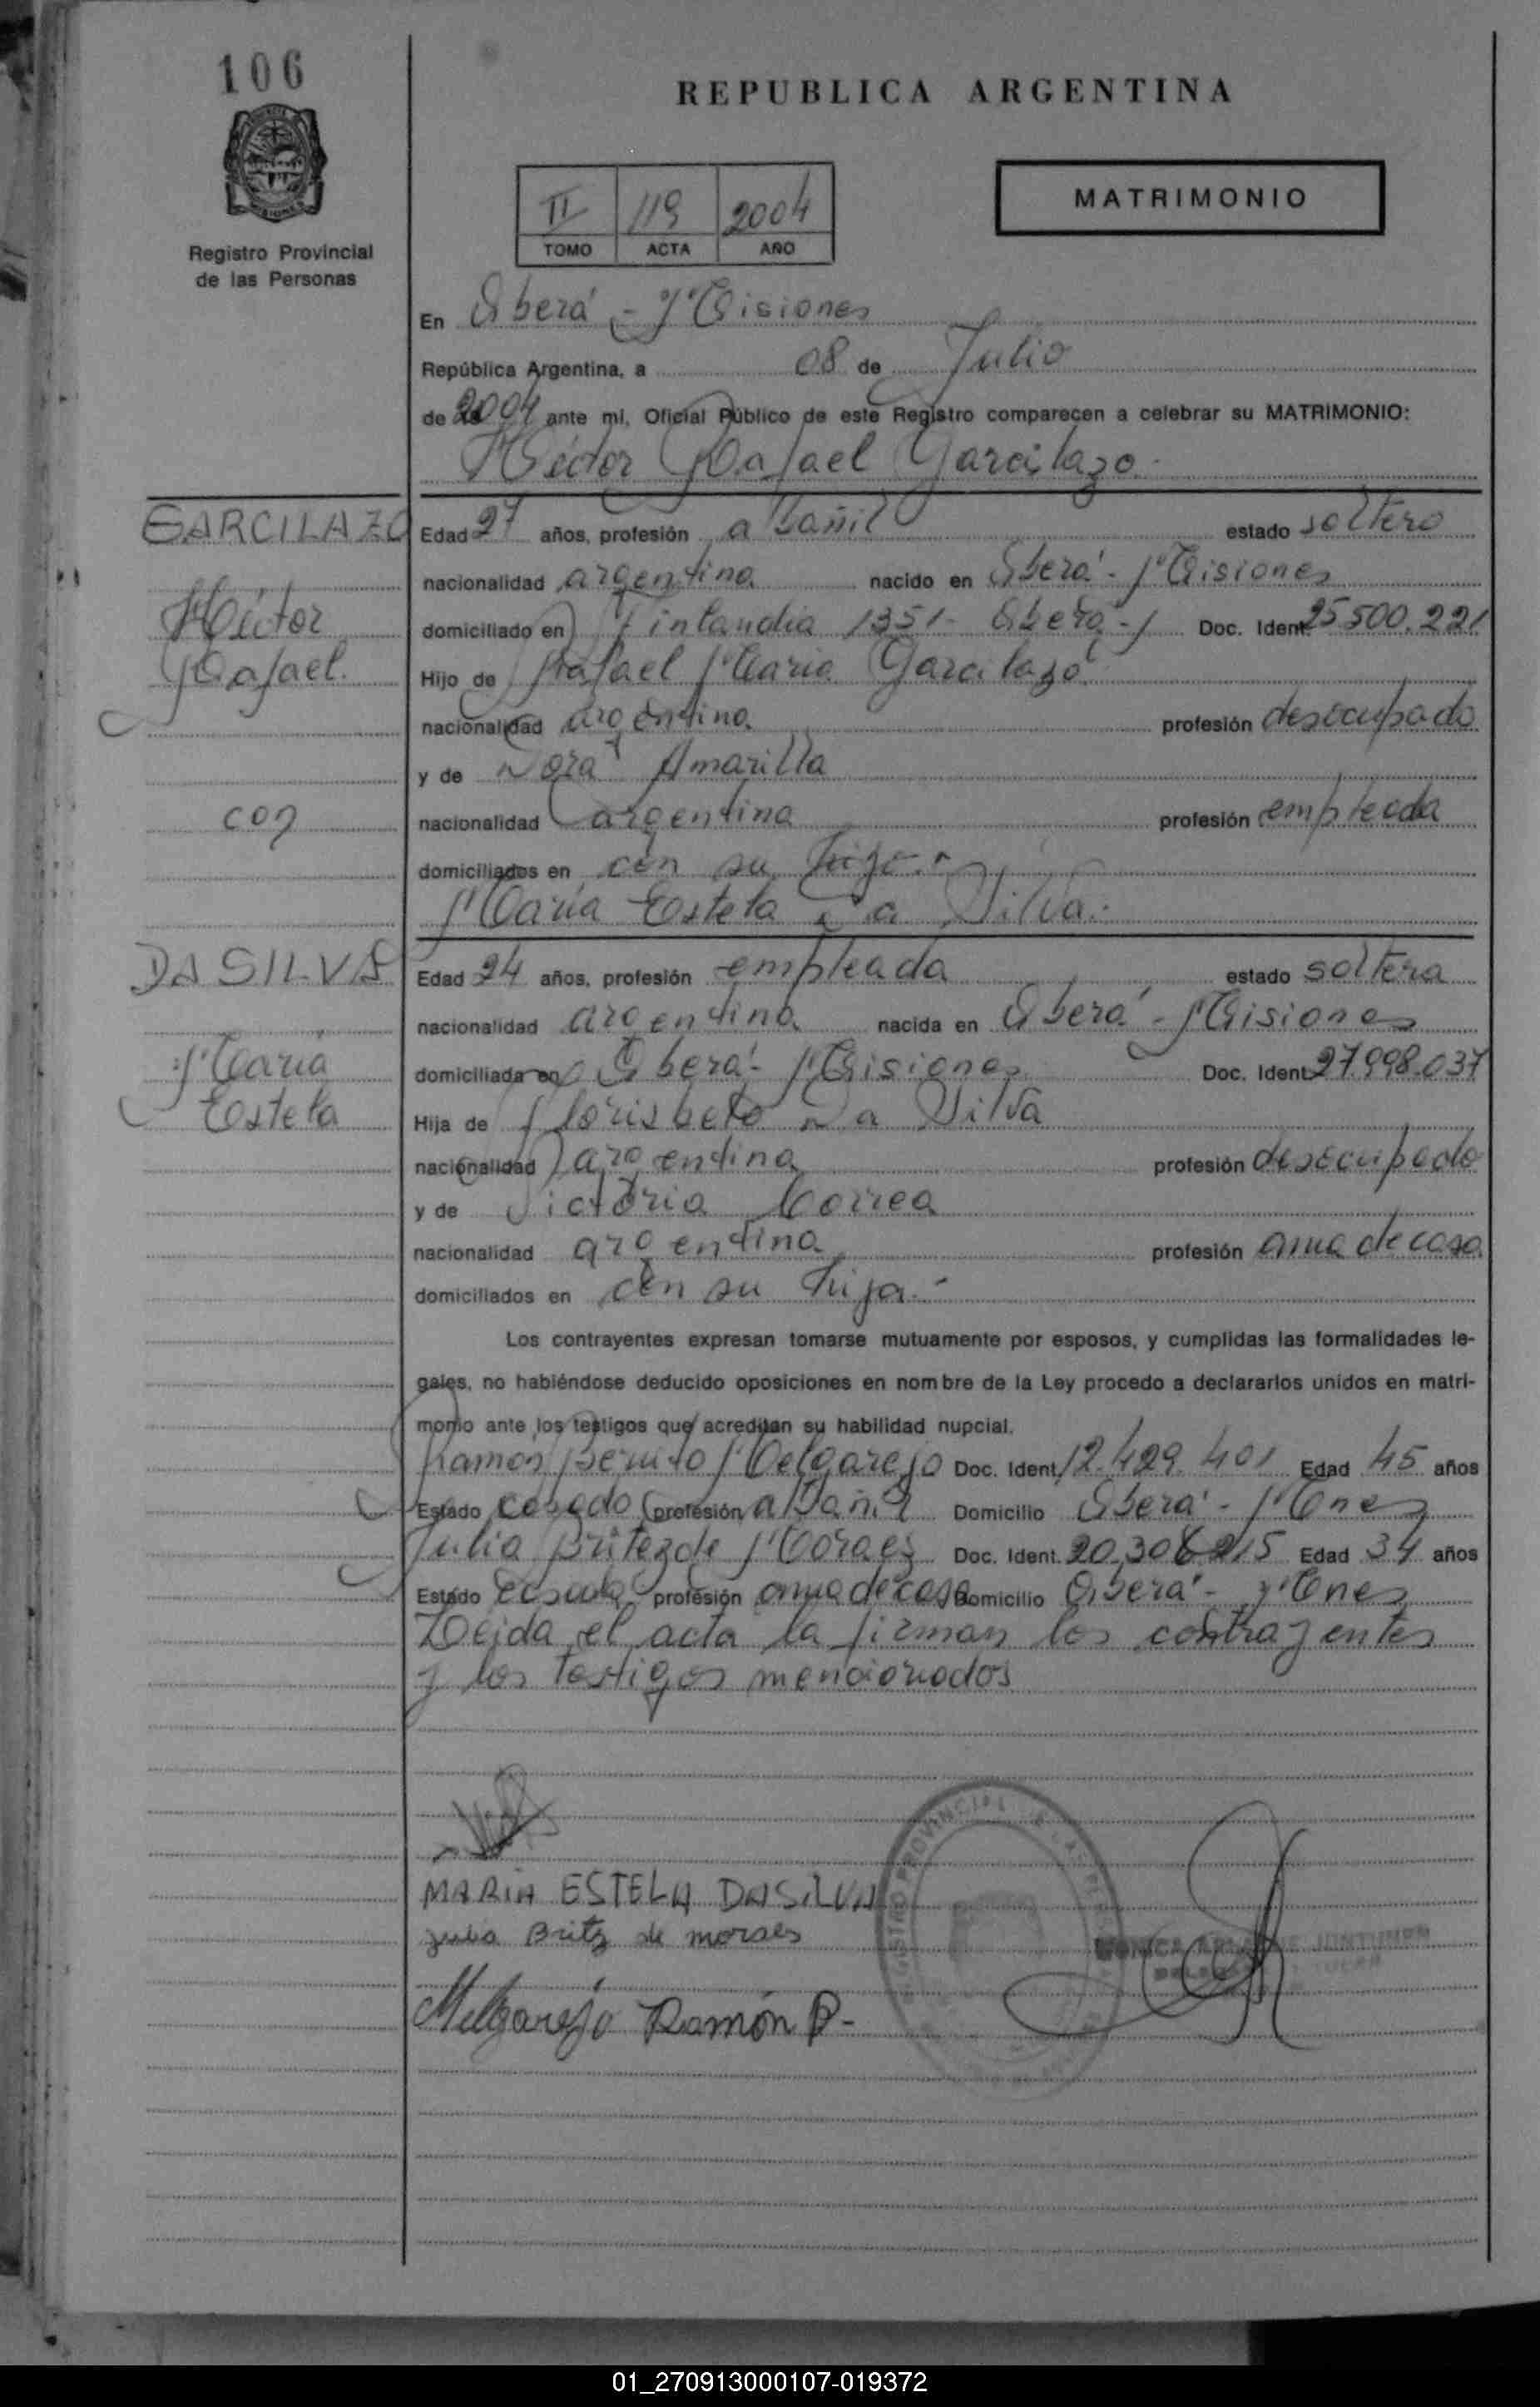 106
REPUBLICA ARGENTINA
MATRIMONIO
II 119 2004
TOMO ACTA AÑO
Registro Provincial
de las Personas
En Oberá - Misiones
República Argentina, a 08 de Julio
de 2004 ante mi, Oficial Público de este Registro comparecen a celebrar su MATRIMONIO:
Héctor Rafael Garcilazo.
GARCILAZO
Héctor
Rafael.
con
Edad 27 años, profesión albañil estado soltero
nacionalidad argentina nacido en Oberá - Misiones
domiciliado en Finlandia 1351 - Oberá - Doc. Ident. 25.500.221
Hijo de Rafael Mario Garcilazo
nacionalidad argentina profesión desocupado
y de Nora Amarilla
nacionalidad argentina profesión empleada
domiciliados en con su hijo.-
María Estela Da Silva.
DA SILVA
María
Estela
Edad 24 años, profesión empleada estado soltera
nacionalidad argentina nacida en Oberá - Misiones
domiciliada en Oberá - Misiones Doc. Ident. 27.998.037
Hija de Florisbelo Da Silva
nacionalidad argentina profesión desocupado
y de Victoria Correa
nacionalidad argentina profesión ama de casa
domiciliados en con su hija.-
Los contrayentes expresan tomarse mutuamente por esposos, y cumplidas las formalidades le-
gales, no habiéndose deducido oposiciones en nombre de la Ley procedo a declararlos unidos en matri-
monio ante los testigos que acreditan su habilidad nupcial.
Ramón Benito Melgarejo Doc. Ident. 12.429.401 Edad 45 años
Estado casado profesión albañil Domicilio Oberá - Mnes
Julia Britez de Moraes Doc. Ident. 20.306215 Edad 34 años
Estado casada profesión ama de casa Domicilio Oberá - Mnes
Leida el acta la firman los contrayentes
y los testigos mencionados
MARIA ESTELA DASILVA
Julia Britz de moraes
Melgarejo Ramón B-
REGISTRO PROVINCIAL DE LAS
MONICA
01_270913000107-019372